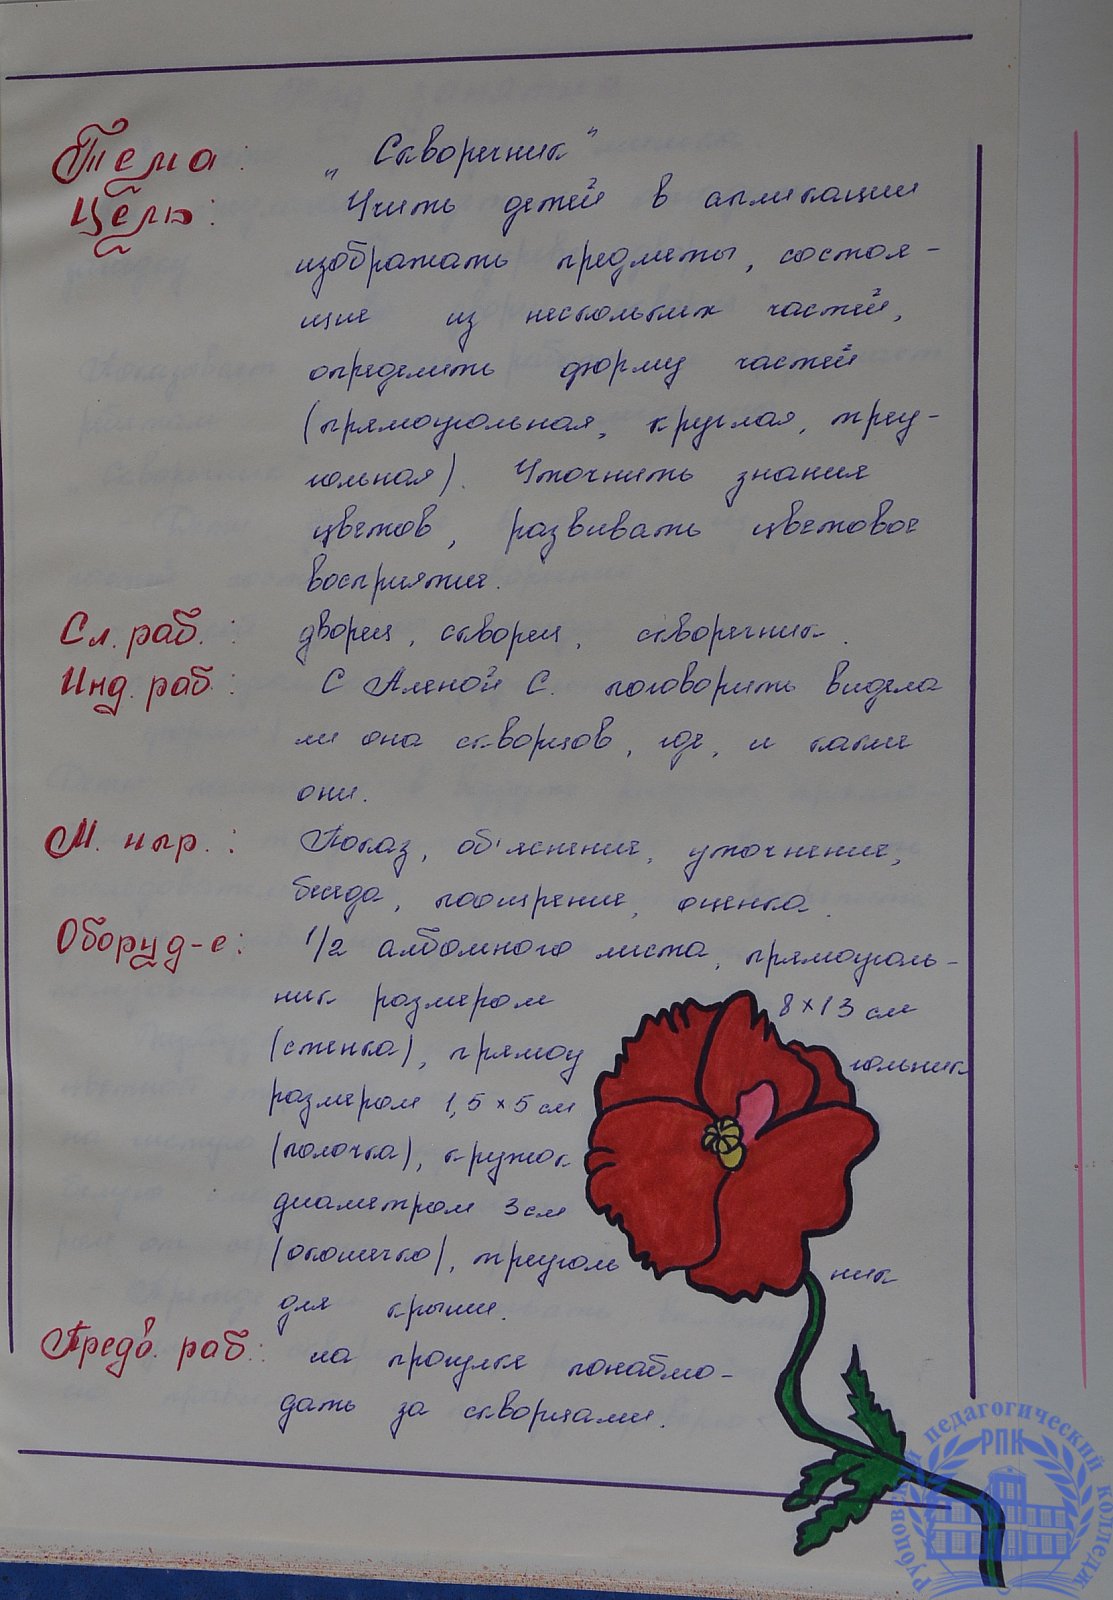 Тема: „Скворечник"
Цель: Учить детей в апликации
изображать предметы, состоя-
щие из нескольких частей,
определить форму частей
(прямоугольная, круглая, треу-
гольная). Уточнить знания
цветов, развивать цветовое
восприятие.
Сл. раб.: дворец, скворец, скворечник.
Инд. раб.: С Аленой С. поговорить видела
ли она скворцов, где, и какие
они.
М. и пр.: Показ, об'яснение, уточнение,
беседа, поощрение, оценка.
Оборуд-е: 1/2 албомного листа, прямоуголь-
ник размером 8×13 см
(стенка), прямоу гольник
размером 1,5×5 см
(полочка), кружок
диаметром 3 см
(окошечко), треуголь ник
для крыши.
Предв. раб.: на прогулке понаблю-
дать за скворцами.
РУБЦОВСКИЙ педагогический колледж
РПК